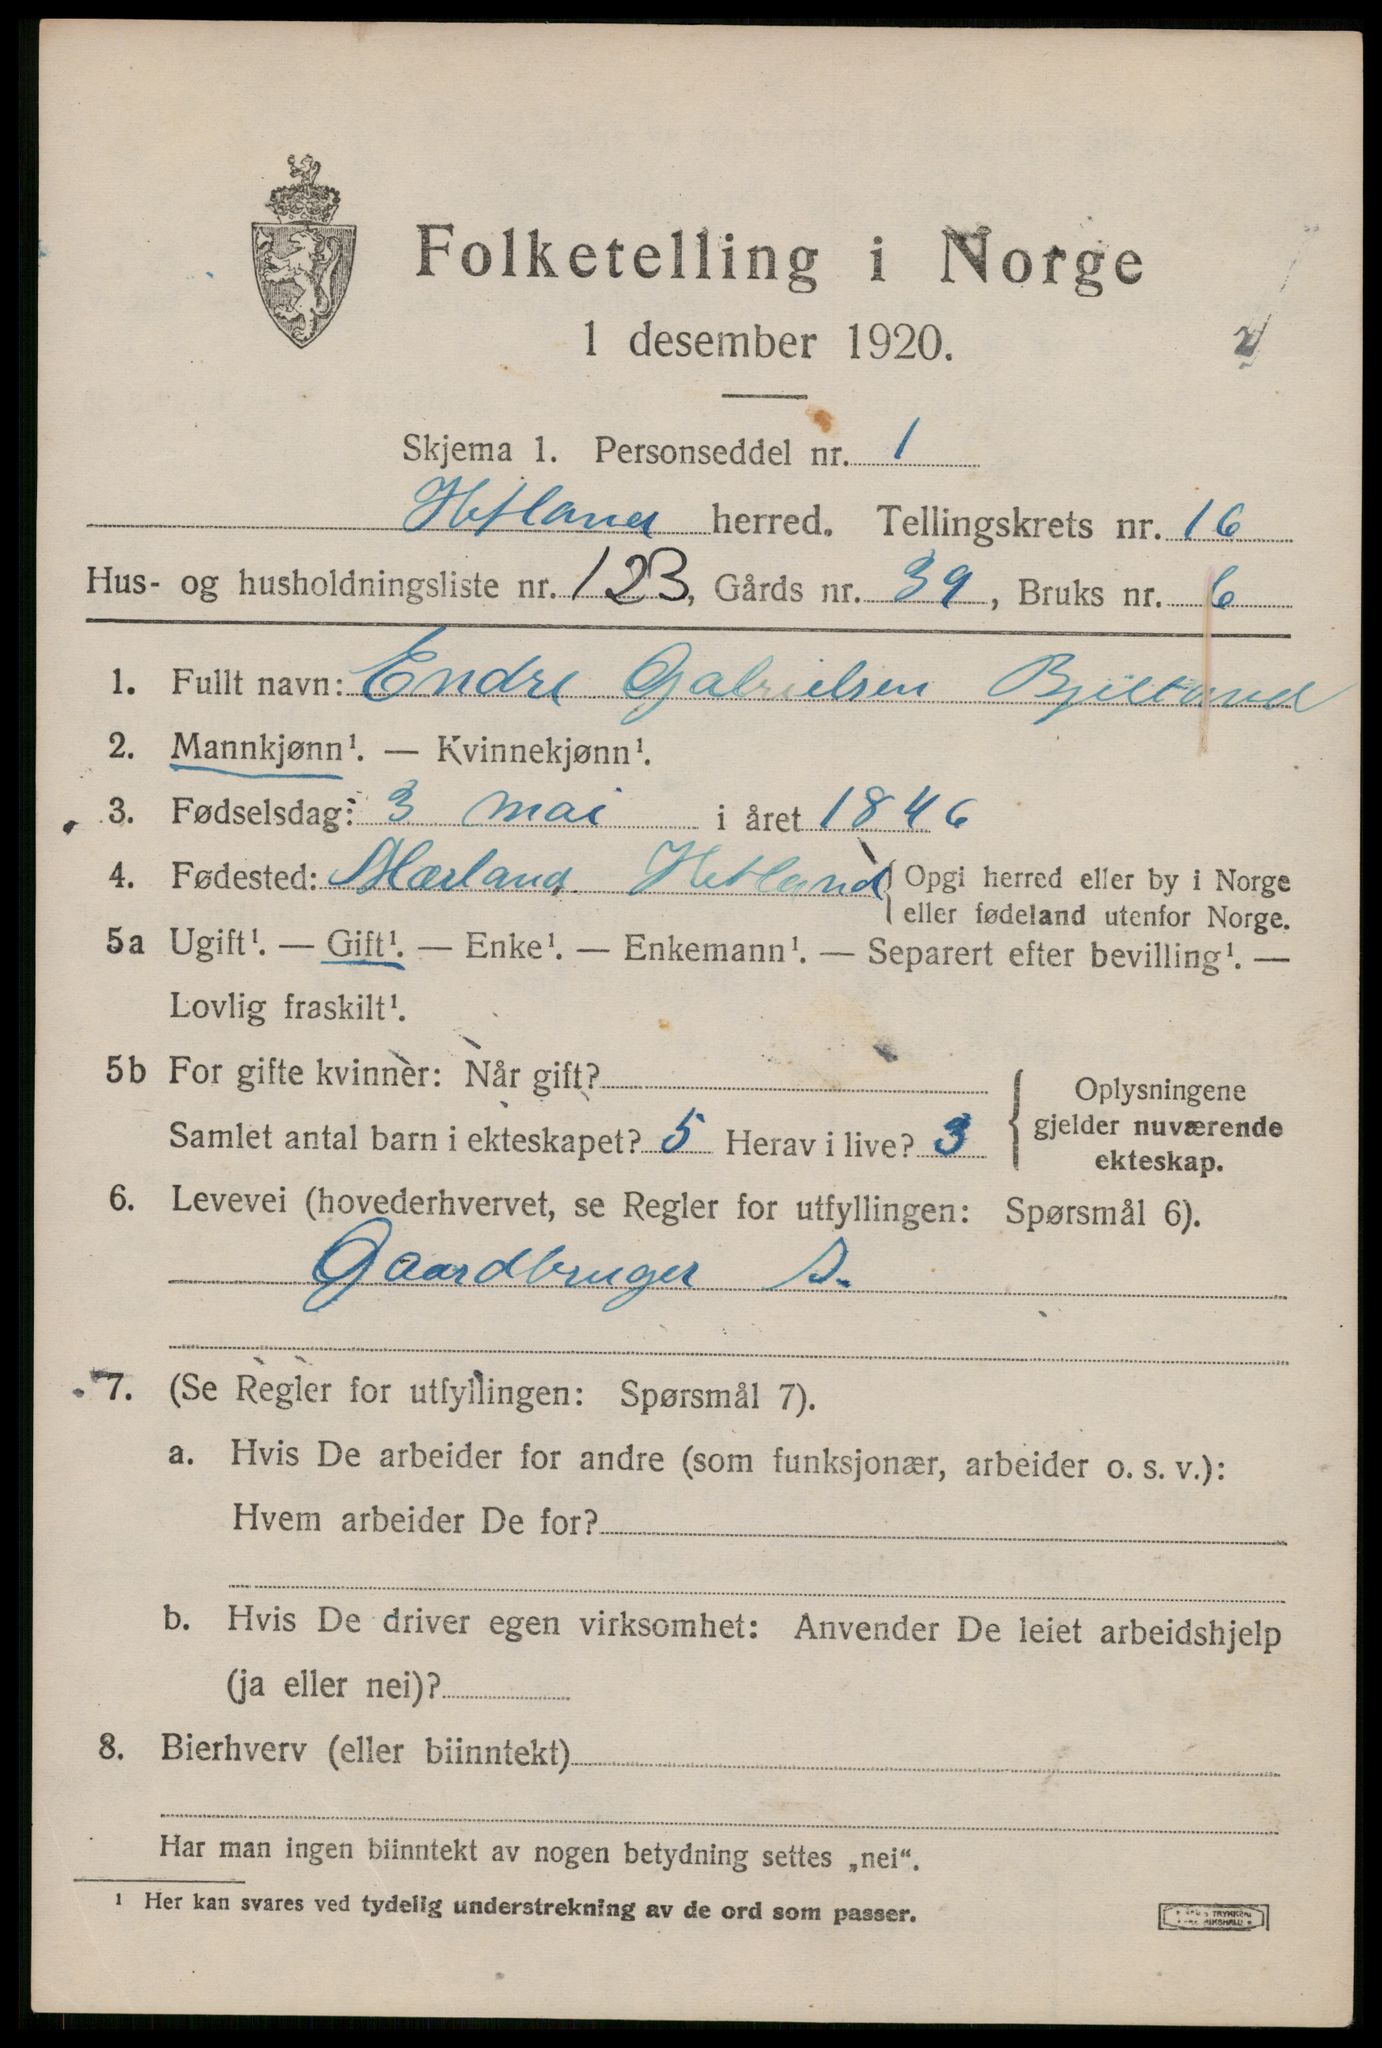 Folketelling i Norge
1 desember 1920.
Skjema 1. Personseddel nr. 1
Hetland herred. Tellingskrets nr. 16
Hus- og husholdningsliste nr. 123, Gårds nr. 39, Bruks nr. 6
1. Fullt navn: Endre Gabrielsen Bjelland
2. Mannkjønn¹. — Kvinnekjønn¹.
3. Fødselsdag: 3 mai i året 1846
4. Fødested: Hetland { Opgi herred eller by i Norge
eller fødeland utenfor Norge.
5a Ugift¹. — Gift¹. — Enke¹. — Enkemann¹. — Separert efter bevilling¹. —
Lovlig fraskilt¹.
5b For gifte kvinner: Når gift?
Samlet antal barn i ekteskapet? 5 Herav i live? 3
Oplysningene
gjelder nuværende
ekteskap.
6. Levevei (hovederhvervet, se Regler for utfyllingen: Spørsmål 6).
Gaardbruger S.
7. (Se Regler for utfyllingen: Spørsmål 7).
a. Hvis De arbeider for andre (som funksjonær, arbeider o. s. v.):
Hvem arbeider De for?
b. Hvis De driver egen virksomhet: Anvender De leiet arbeidshjelp
(ja eller nei)?
8. Bierhverv (eller biinntekt)
Har man ingen biinntekt av nogen betydning settes „nei“.
¹ Her kan svares ved tydelig understrekning av de ord som passer.